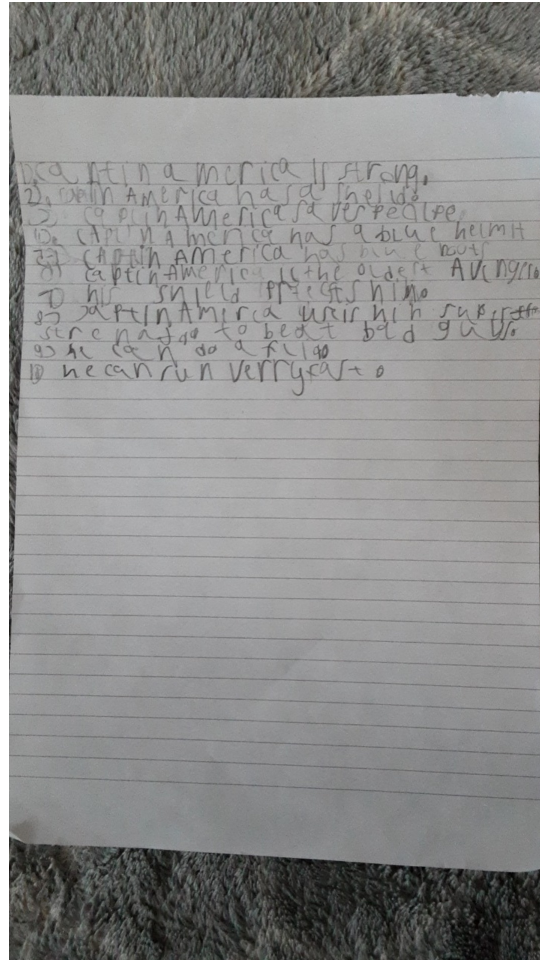 1). captin america is strong.
2). captin America has a sheild.
3). captin America sa ver peaple
4). CAptin America has a blue helmit
5) captin America has blue bouts
6) captin America is the oldest Avenger.
7) his shield protects him.
8) captin America his super
to beat bad
9) he can do a flip
10 he can run verry fast.